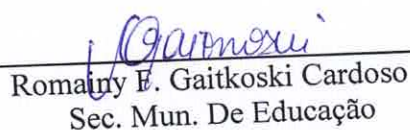 Romainy F. Gaitkoski Cardoso
Sec. Mun. De Educação